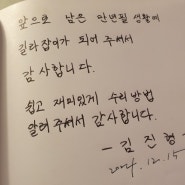 앞으로 남은 만년필 생활에
길라잡이가 되어 주셔서
감사합니다.
쉽고 재미있게 수리방법
알려주셔서 감사합니다.
- 김진형
2024. 12. 15